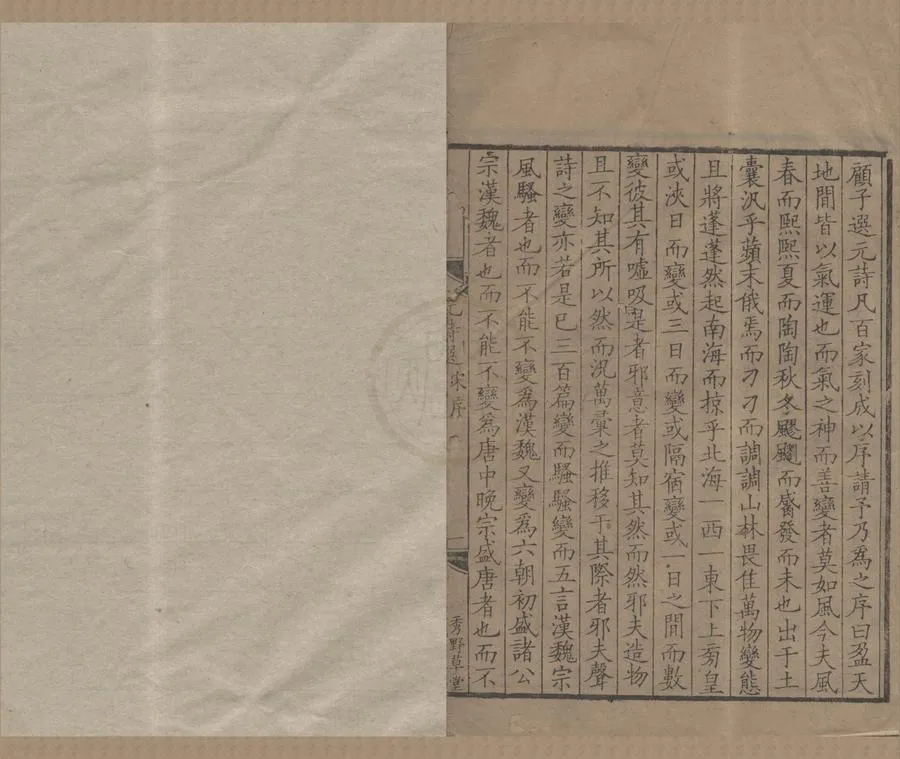 顧子選元詩凡百家刻成以序請予乃為之序曰盈天
地間皆以氣運也而氣之神而善變者莫如風今夫風
春而熙熙夏而陶陶秋冬飂飂而觱發而未也出于土
囊汎乎蘋末俄焉而刁刁而調調山林畏佳萬物變態
且將蓬蓬然起南海而掠乎北海一西一東下上旁皇
或浹日而變或三日而變或隔宿變或一日之間而數
變彼其有噓吸是者邪意者莫知其然而然邪夫造物
且不知其所以然而況萬彙之推移于其際者邪夫聲
詩之變亦若是已三百篇變而騷騷變而五言漢魏宗
風騷者也而不能不變為漢魏又變為六朝初盛諸公
宗漢魏者也而不能不變為唐中晚宗盛唐者也而不
元詩選 宋序 一 秀野草堂